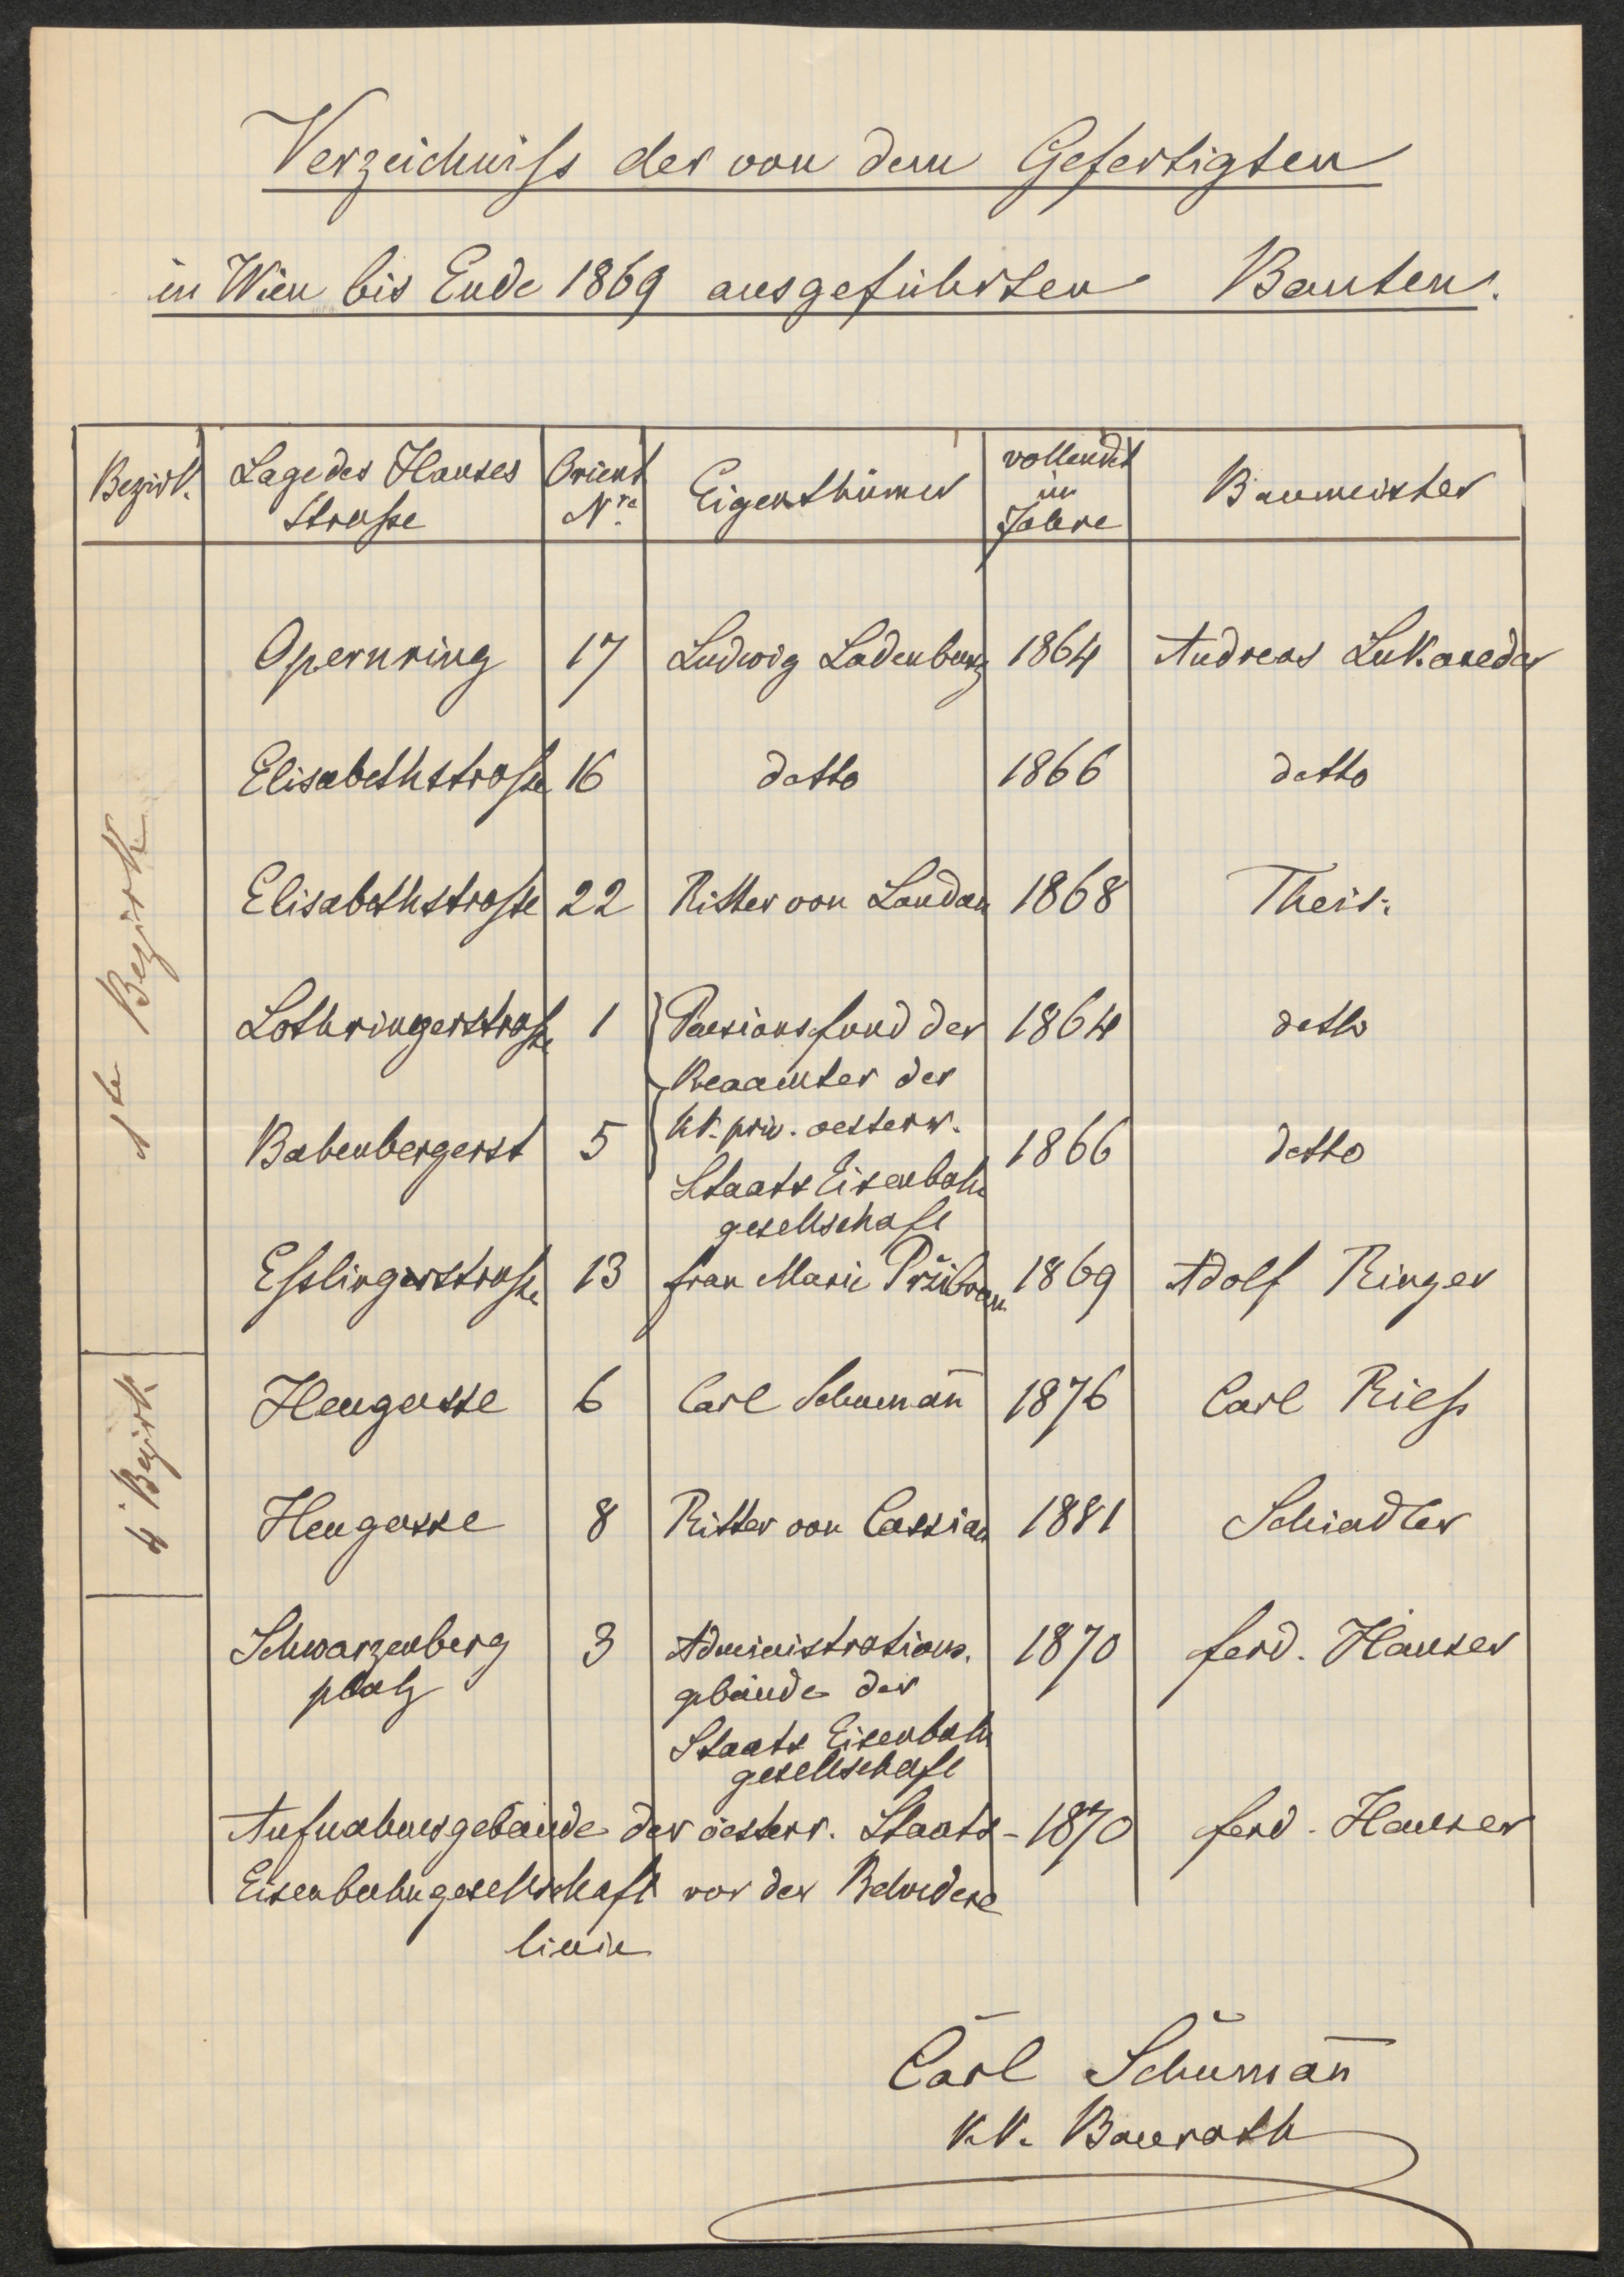 Verzeichniss der von dem Gefertigten
in Wien bis Ende 1869 ausgeführten Bauten.
Bezirk. Lage des Hauses Strasse Orient Nro. Eigenthümer vollendet im Jahre Baumeister
1te Bezirk
Opernring 17 Ludwig Ladenburg 1864 Andreas Lukaneder
Elisabethstrasse 16 detto 1866 detto
Elisabethstrasse 22 Ritter von Landau 1868 Theis.
Lothringerstrasse 1 Pensionsfond der 1864 detto
Beaamter der
Babenbergerst 5 kk. priv. oesterr. 1866 detto
Staats Eisenbahn
gesellschaft
Esslingerstrasse 13 frau Marie Přibram 1869 Adolf Ringer
4t Bezirk
Heugasse 6 Carl Schuman̄ 1876 Carl Riess
Heugasse 8 Ritter von Cassian 1881 Schindler
Schwarzenberg 3 Administrations. 1870 ferd. Hauser
platz gebäude der
Staats Eisenbahn
gesellschaft
Aufnahmsgebäude der oesterr. Staats- 1870 ferd. Hauser
Eisenbahngesellschaft vor der Belvedere
linie
Carl Schuman̄
k.k. Baurath